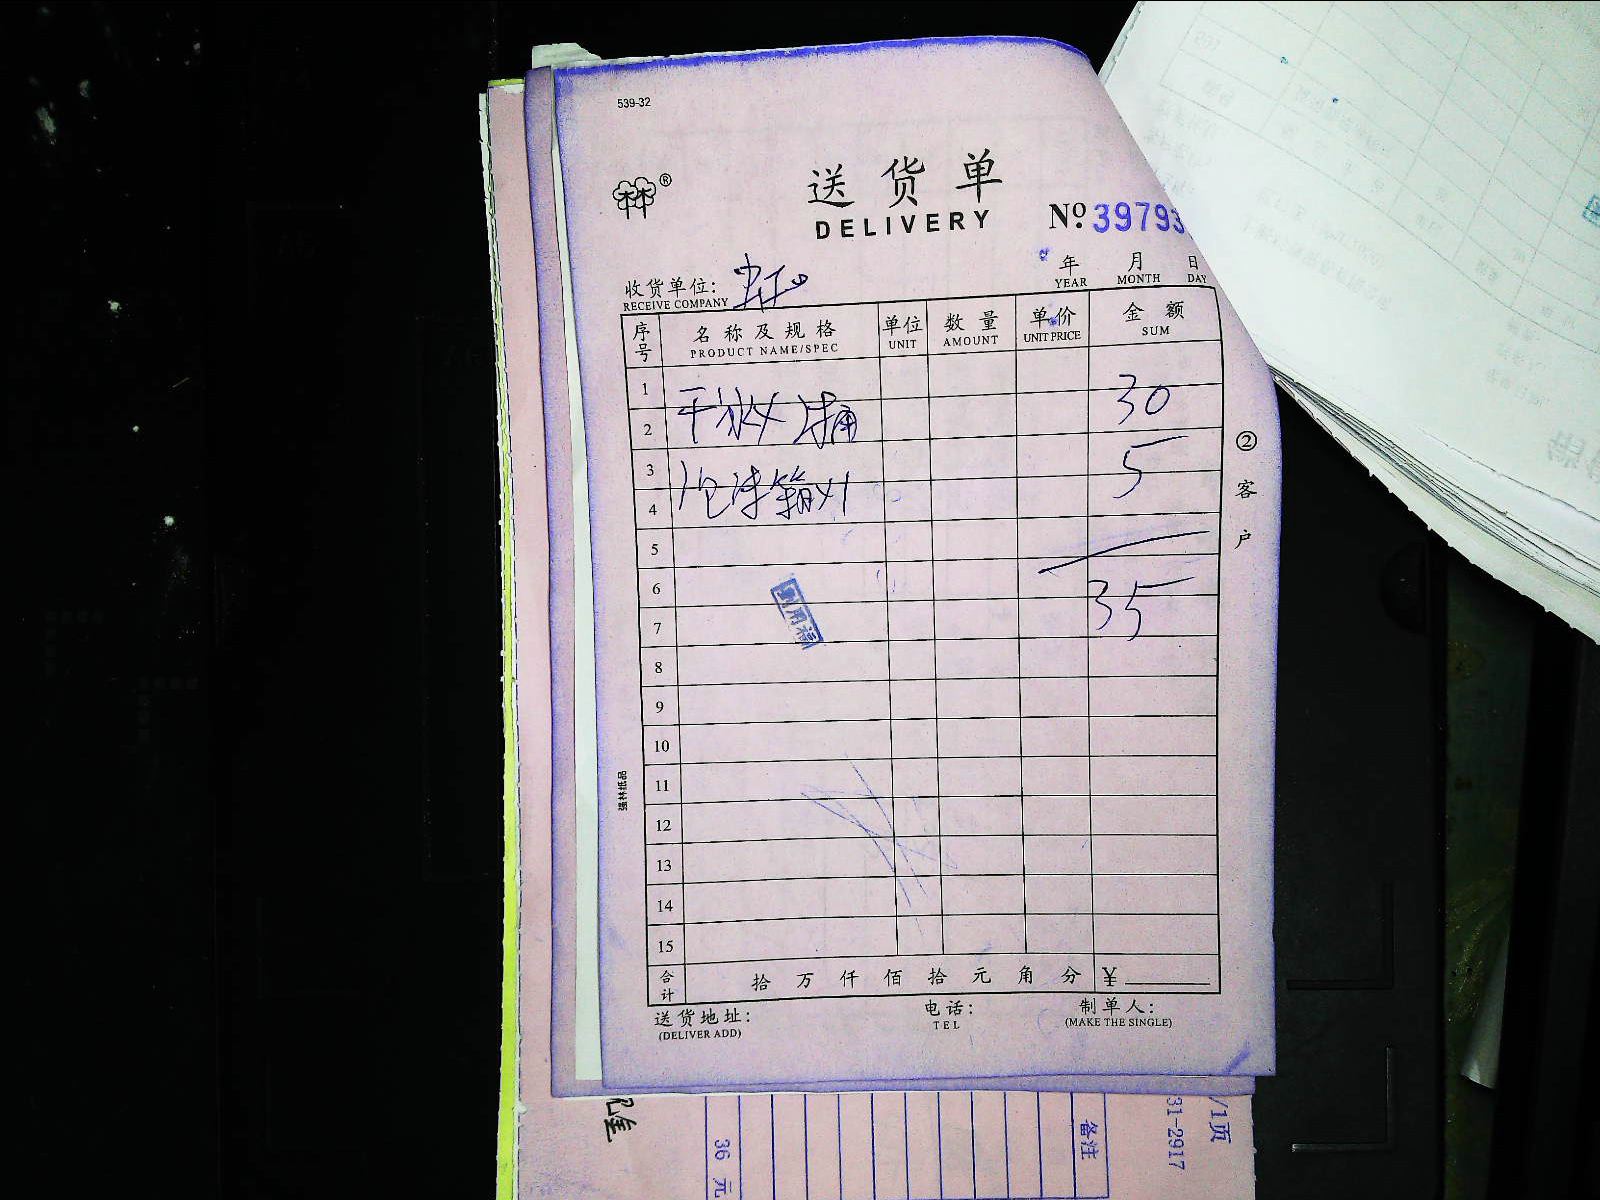 539-32
®
送货单
DELIVERY
No. 39793
年 月 日
YEAR MONTH DAY
收货单位:
RECEIVE COMPANY
序号 名称及规格 单位 数量 单价 金额
PRODUCT NAME/SPEC UNIT AMOUNT UNIT PRICE SUM
1
2 30
3
4 5
5
6
7 35
8
9
10
11
12
13
14
15
合计 拾 万 仟 佰 拾 元 角 分 ¥
送货地址: 电话: 制单人:
(DELIVER ADD) TEL (MAKE THE SINGLE)
②客户
强林纸品
36 元
备注
31-2917
/1页